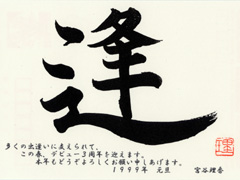 逢
多くの出逢いに支えられて、
この春、デビュー3周年を迎えます。
本年もどうぞよろしくお願い申しあげます。
1999年 元旦 宮谷理香